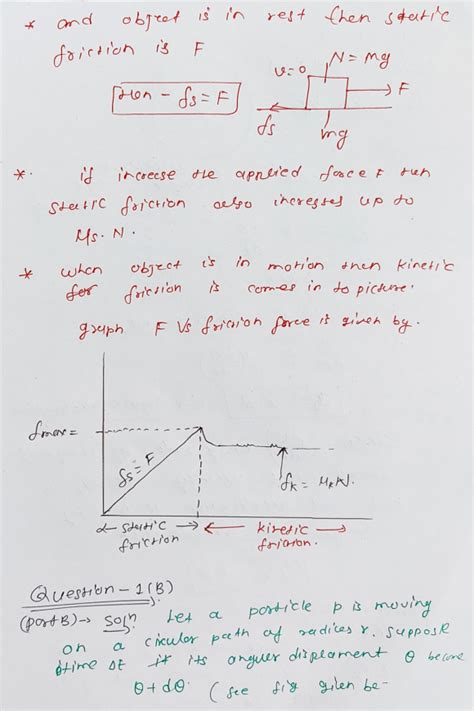 * and object is in rest then static
friction is F
then - fs = F
v=0
N = mg
F
fs
mg
*. if increese the applied force F then
static friction also increases up to
μs. N.
* when object is in motion then kinetic
for friction is comes in to picture.
graph F Vs friction force is given by.
fmax =
fs = F
fk = μkN.
static friction
kinetic friction.
Question-1(B)
(part B)→ Soln. Let a particle p is moving
on a circular path of radices r. suppose
dtime dt it its angular displament θ become
θ+dθ. (see fig gilen be-